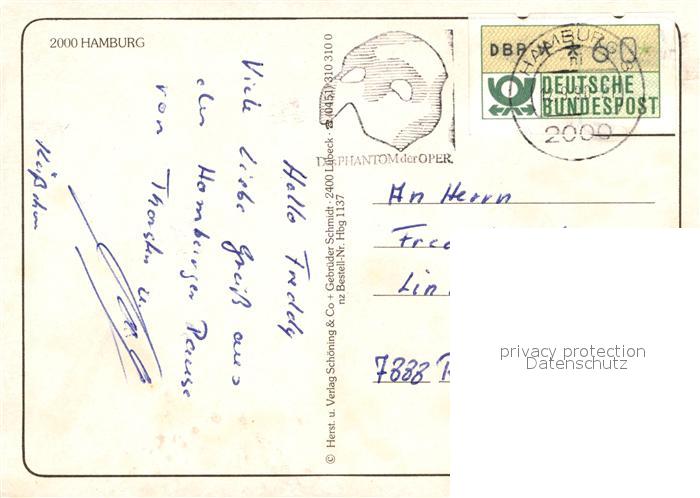 2000 HAMBURG
Hallo Freddy
Viele liebe Grüße aus
der Hamburger Pause
von Thorsten u.
Küßchen
© Herst. u. Verlag Schöning & Co + Gebrüder Schmidt · 2400 Lübeck · ☎ (0451) 310 310 0
nz Bestell-Nr. Hbg 1137
DAS PHANTOM der OPER
DBP * * 60 *
DEUTSCHE
BUNDESPOST
HAMBURG
2000
An Herrn
Fred
Lin
7888
privacy protection
Datenschutz